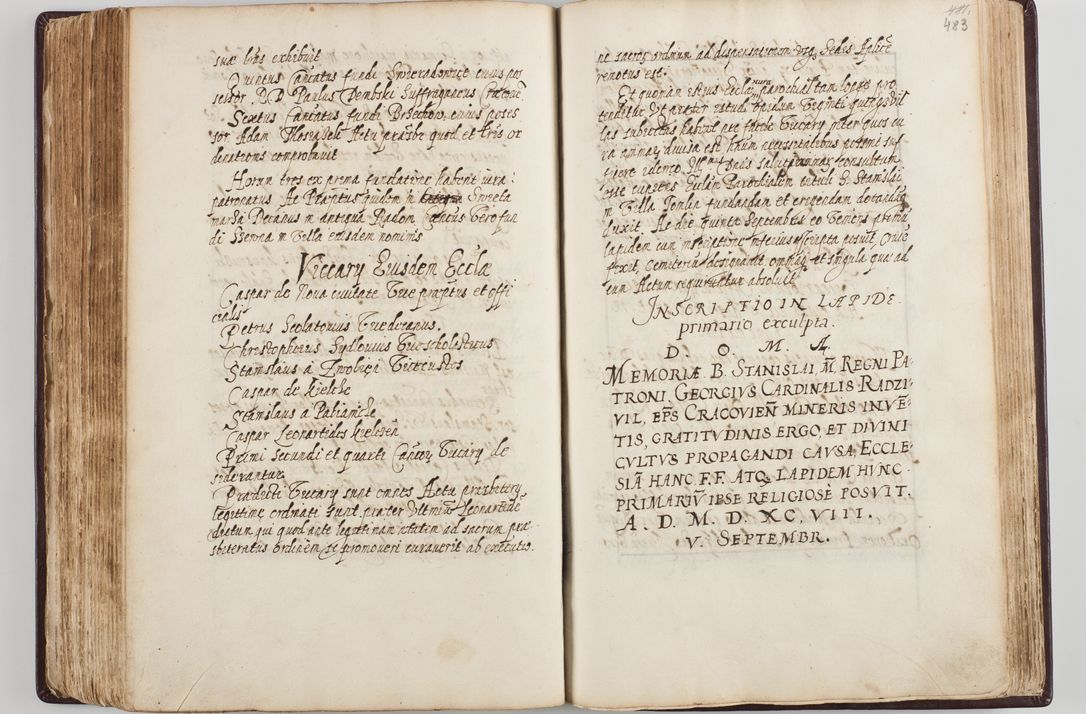 suæ lr̃as exhibuit
Quintus Canōatus fundi Swieradowice cuius pos
sessor R.D. Paulus Dembski Suffraganeus Cracouień.
Sextus Canōatus fundi Brzechow, cuius posses
sor Adam Actu præsbr quod et lr̃is or
denationis comprobauit
Horum tres ex prima fundatione habent iura
patronatus Ac Præp̃tus quidem in Swiela
na Sa Decanus in antiqua Radom Cantus Vero fun
di Siewna in Villa eiusdem nominis
Viccary Eiusdem Ecclæ
Caspar de Noua ciuitate Vice præp̃tus et offi
cialis
Petrus Scolatouius Vicedecanus.
Christophorus Sydlouius Vicescholasticus
Stanislaus à Zwoliẽn Vicecustos
Caspar de kielche
Stanislaus a Pabianicle
Caspar Leonartides kielceń
Primi secundi et quarti Canōcor, Vicary de
siderantur.
Prædicti Vicary sunt omnes Actu præsbitery
legittime ordinati sunt, præter Vltimū Leonartidē
dictum qui quod ante legittimam ætatem ad sacrum præ
sbiteratus ordinem se promoueri curauerit ab executio.
481,
483
ne sacros ordinum ad dispensationem vsq Sedis Aplicæ
remotus est.
Et quoniam eius Ecclæ cura parochial tam longe pro
tenditur Vt præter istud opidum Viginti quinq, Vil
las subiectas habeat nec facile Vicary inter quos cu
ra animar, diuisa est harum necessitatibus possent suf
ficere idcirco Ill^mus Dñus saluti animar, consultum
esse cupiens Ecclam Parochialem tituli S. Stanislai
in Villa fundandam et erigendam dotandāq,
duxit. Ac die quinta Septembris eo Veniens primū
lapidem cum inscriptione inferius scripta posuit, Crucē
fixit, Cemiteriū designauit omniaq, et singula quæ ad
eum Actum requiruntur absoluit
INSCRIPTIO IN LAPIDE.
primario exculpta.
D. O. M. A.
MEMORIÆ B. STANISLAI, M̃. REGNI PA-
TRONI, GEORGIVS CARDINALIS RADZI-
VIL, EP̃S CRACOVIEÑ MINERIS INVĒ-
TIS, GRATITVDINIS ERGO, ET DIVINI
CVLTVS PROPAGANDI CAVSA, ECCLE-
SIÃ HANC F.F. ATQ, LAPIDEM HVNC
PRIMARIṼ IPSE RELIGIOSE POSVIT.
A. D. M. D. XC, VIII.
V. SEPTEMBR.